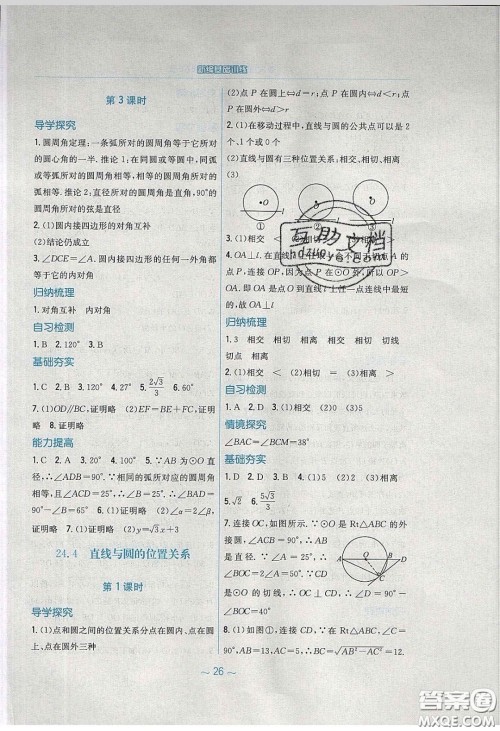 新编基础训练
第3课时
导学探究
1.圆周角定理:一条弧所对的圆周角等于它所
对的圆心角的一半.推论1:在同圆或等圆中,同弧
或等弧所对的圆周角相等,相等的圆周角所对的
弧相等.推论2:直径所对的圆周角是直角,90°的
圆周角所对的弦是直径
2.(1)圆内接四边形的对角互补
(2)结论仍成立
3.∠DCE=∠A.圆内接四边形的任何一外角都
等于它的内对角
归纳梳理
1.对角互补 内对角
自习检测
1.B 2.120° 3.B
基础夯实
1.C 2.B 3.120° 4.27° 5.2√3/3 6.60°
7.(1)OD∥BC,证明略 (2)EF=BE+FC,证明
略 8.证明略
能力提高
1.C 2.A 3.100° 4.2 5.∵AB为⊙O直
径,∴∠ADB=90°.∵相同的弧所对应的圆周角
相等,且∠ACD=25°,∴∠B=25°.∴∠BAD=90°
-∠B=65° 6.(1)证明略 (2)α=2β,
证明略 7.(1)证明略 (2)y=√3x+3
24.4 直线与圆的位置关系
第1课时
导学探究
1.(1)点和圆之间的位置关系分点在圆内、点在圆
上、点在圆外三种
(2)点P在圆上⇔d=r;点P在圆内⇔d<r;点P
在圆外⇔d>r
2.(1)在移动过程中,直线与圆的公共点可以是2
个、1个或0个
(2)直线与圆有三种位置关系:相交、相切、相离
(3)
① ② ③
3.(1)相交 <
4.OA⊥l.
点P,连接OP,因为点P在⊙O外,所以OP>
OA.即OA是点O到直线l上任一点连线中最短
的.故OA⊥l
归纳梳理
1.3 相交 相切 相离 相交 相切 切线
切点 相离
自习检测
1.A 2.D 3.(1)相交 (2)0 (3)5
情境探究
∠BAC=∠BCM=38°
基础夯实
1.D 2.D 3.B 4.(1)5 (2)2 (3)相离
5.√2 6.5√3/3
7.连接OC,如图所示.∵Rt△ABC
中,∠ACB=90°,∠BAC=25°,
∴∠ABC=65°.∵OB=OC,
∴∠OCB=∠ABC=65°.∵CD是
⊙O的切线,∴OC⊥CD.
∴∠OCD=90°.∴∠BCD=90°-
∠BCO=40°
8.(1)如图①,连接OC.∵在Rt△ABC中,∠ACB
=90°,AB=13,AC=5,∴BC=√AB²−AC²=12.
~26~
互助文档
答案圈
MXQE.COM